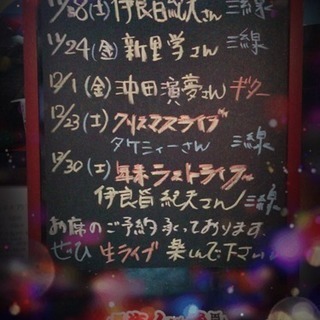 11/18(土)伊良皆紀夫さん 三線
11/24(金)新里学さん 三線
12/1(金)沖田演夢さん ギター
12/23(土)クリスマスライブ
タケシィーさん 三線
12/30(土)年末ラストライブ
伊良皆紀夫さん 三線
お席のご予約承っております。
ぜひ生ライブ楽しんで下さい